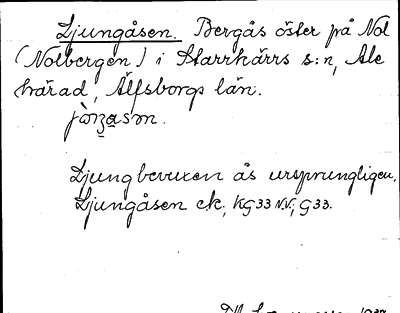 Ljungåsen. Bergås öster på Nol
(Nolbergen) i Starrkärrs s:n, Ale
härad, Älfsborgs län.
Ljung bevuxen ås ursprungligen.
Ljungåsen ek., KG33 NV; G33.